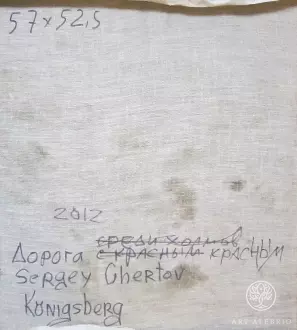 57x52,5
2012
Дорога среди холмов
с красным красным
Sergey Chertov
Königsberg
ARS SACERDIO